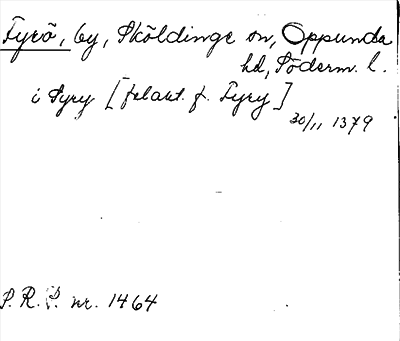 Fyrö, by, Sköldinge sn, Oppunda
hd, Söderm. l.
i Syry [felakt. f. Fyry]
30/11 1379
S.R.P. nr. 1464